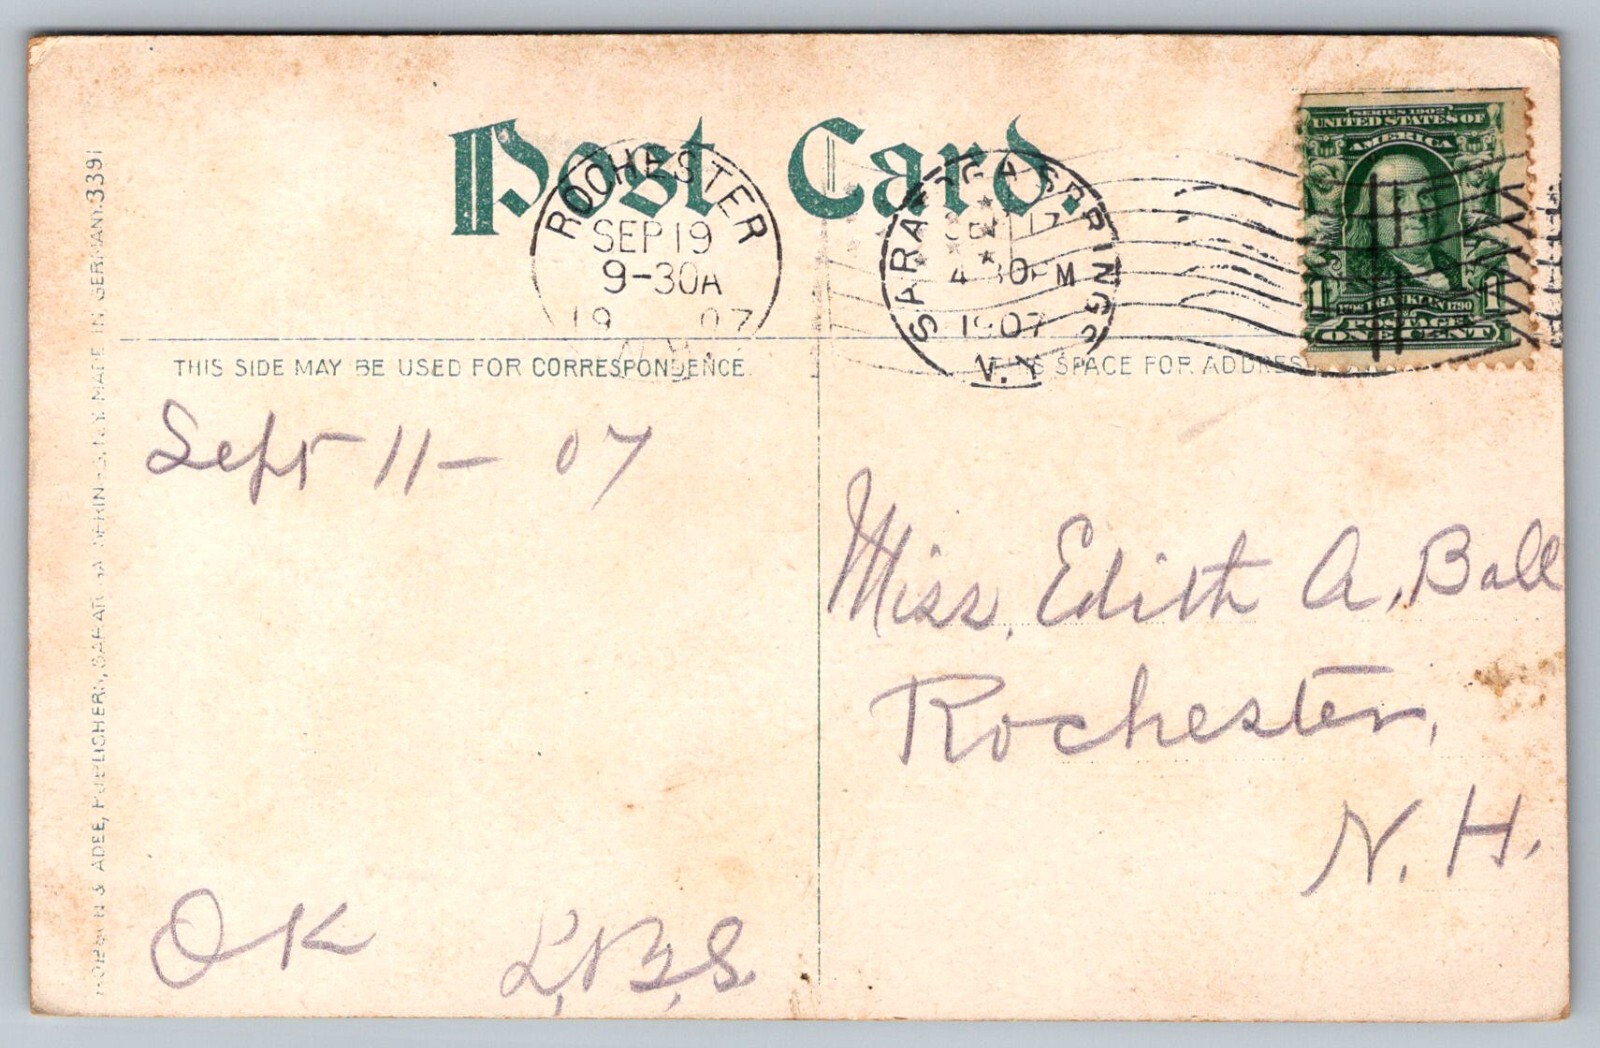 Post Card.
ROCHESTER
SEP 19
9-30A
19 07
N.H.
SARATOGA SPRINGS
SEP 17
4 30 PM
1907
N.Y.
SERIES 1902
UNITED STATES OF
AMERICA
1 1706 FRANKLIN 1790 1
POSTAGE
ONE CENT
THIS SIDE MAY BE USED FOR CORRESPONDENCE
THIS SPACE FOR ADDRESS
Sept 11 - 07
Miss, Edith A, Ball
Rochester,
N. H.
OK L,B,S.
& ADEE, PUBLISHERS, SARATOGA SPRINGS, N.Y. MADE IN GERMANY. 3391